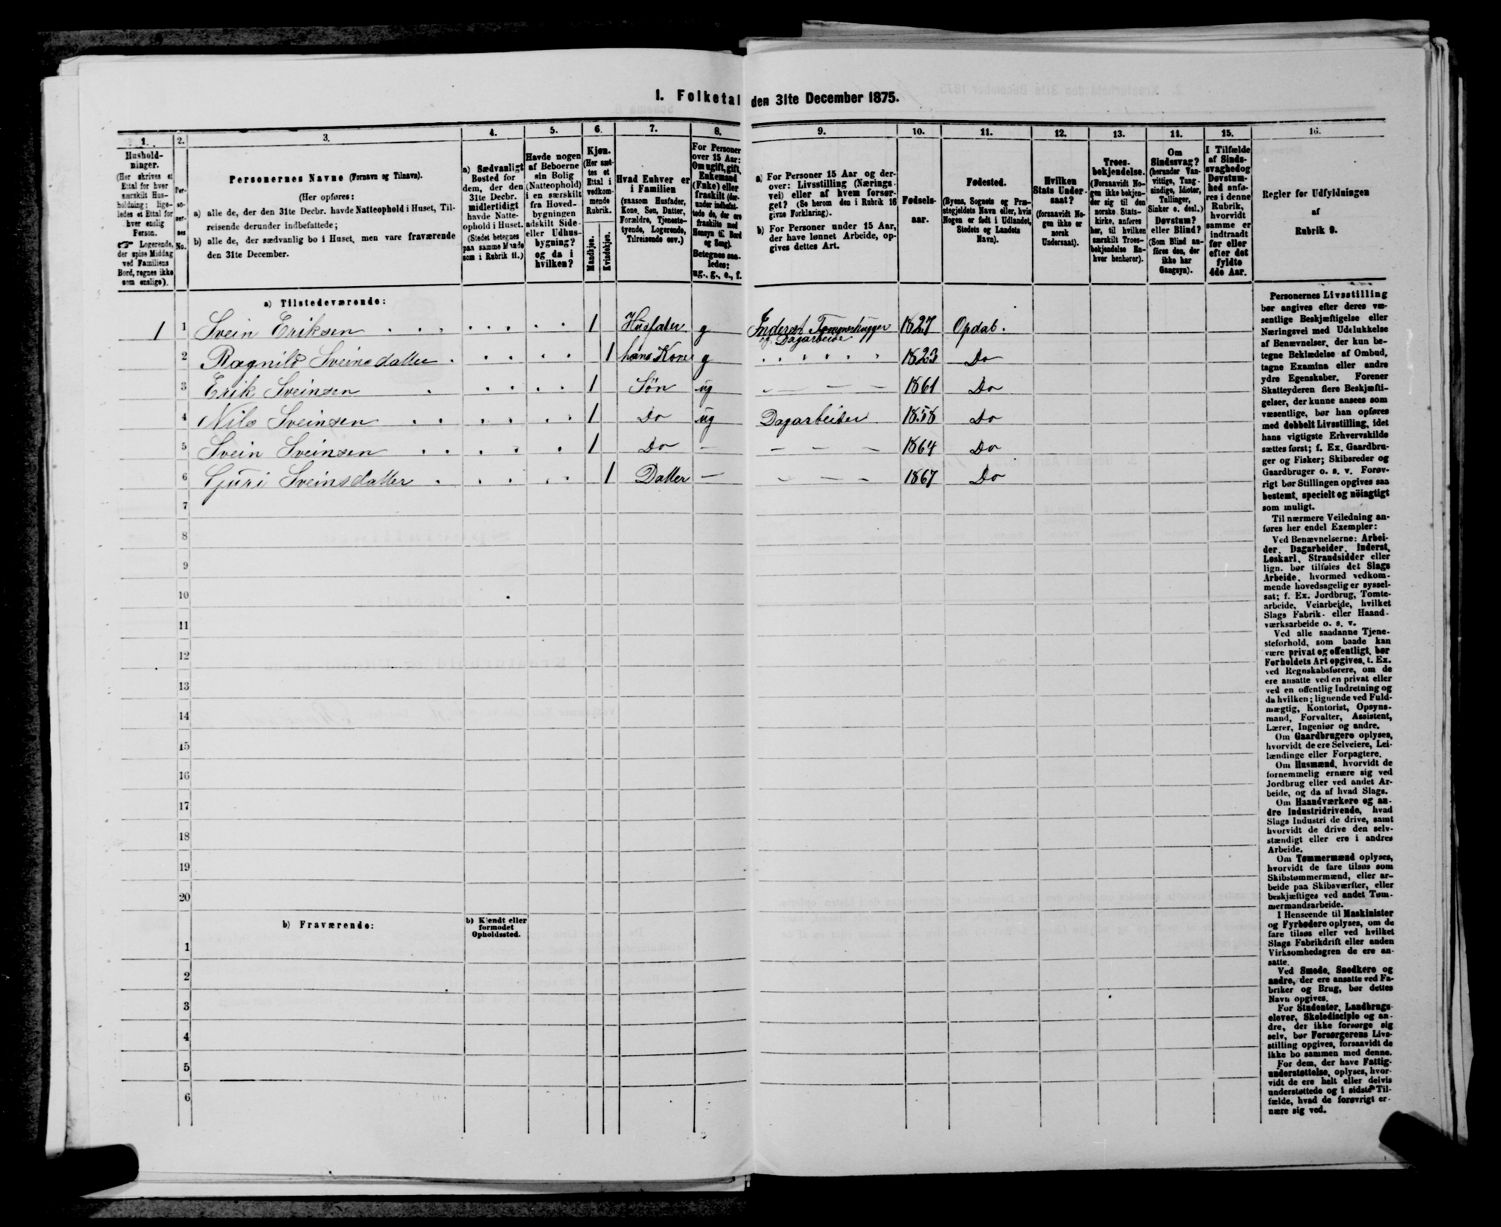 1. Folketal den 31te December 1875.
1. 2. 3. 4. 5. 6. 7. 8. 9. 10. 11. 12. 13. 14. 15. 16.
Hushold-
ninger.
(Her skrives et
Ettal for hver
særskilt Hus-
holdning; lige-
ledes et Ettal for
hver enslig
Person.
☞ Logerende,
der spise Middag
ved Familiens
Bord, regnes ikke
som enslige).
Per-
so-
ner-
nes
No.
Personernes Navne (Fornavn og Tilnavn).
(Her opføres:
a) alle de, der den 31te Decbr. havde Natteophold i Huset, Til-
reisende derunder indbefattede;
b) alle de, der sædvanlig bo i Huset, men vare fraværende
den 31te December.
a) Sædvanligt
Bosted for
dem, der den
31te Decbr.
midlertidigt
havde Natte-
ophold i Huset.
(Stedet betegnes
paa samme Maade
som i Rubrik 11.)
Havde nogen
af Beboerne
sin Bolig
(Natteophold)
i en særskilt
fra Hoved-
bygningen
adskilt Side-
eller Udhus-
bygning?
og da i
hvilken?
Kjøn.
(Her sæt-
tes et
Ettal i
vedkom-
mende
Rubrik.
Mandkjøn.
Kvindekjøn.
Hvad Enhver er
i Familien
(saasom Husfader,
Kone, Søn, Datter,
Forældre, Tjeneste-
tyende, Logerende,
Tilreisende osv.)
For Personer
over 15 Aar:
Om ugift, gift,
Enkemand
(Enke) eller
fraskilt (der-
under indbefat-
tede de, der ere
fraskilte med
Hensyn til Bord
og Seng).
Betegnes saa-
ledes:
ug., g., e., f.
a) For Personer 15 Aar og der-
over: Livsstilling (Nærings-
vei) eller af hvem forsør-
get? (Se herom den i Rubrik 16
givne Forklaring).
b) For Personer under 15 Aar,
der have lønnet Arbeide, op-
gives dettes Art.
Fødsels-
aar.
Fødested.
(Byens, Sognets og Præ-
stegjeldets Navn eller, hvis
Nogen er født i Udlandet,
Stedets og Landets
Navn).
Hvilken
Stats Under-
saat?
(forsaavidt No-
gen ikke er
norsk
Undersaat).
Troes-
bekjendelse.
(Forsaavidt No-
gen ikke bekjen-
der sig til den
norske Stats-
kirke, anføres
her, til hvilken
særskilt Troes-
bekjendelse En-
hver henhører).
Om
Sindssvag?
(herunder Van-
vittige, Tung-
sindige, Idioter,
Tullinger,
Sinker o. desl.)
Døvstum?
eller Blind?
(Som Blind an-
føres den, der
ikke har
Gangsyn).
I Tilfælde
af Sinds-
svaghed og
Døvstum-
hed anfø-
res i denne
Rubrik,
hvorvidt
samme er
indtraadt
før eller
efter det
fyldte
4de Aar.
Regler for Udfyldningen
af
Rubrik 9.
a) Tilstedeværende:
1 1 Svein Eriksen 1 Husfader g Inderst Tømmerhugger og Dagarbeide 1827 Opdal.
2 Ragnild Sveinsdatter 1 hans Kone g 1823 Do
3 Erik Sveinsen 1 Søn ug — — — 1861 Do
4 Nils Sveinsen 1 Do ug Dagarbeider 1858 Do
5 Svein Sveinsen 1 Do — — — — 1864 Do
6 Guri Sveinsdatter 1 Datter — — — — 1867 Do
7
8
9
10
11
12
13
14
15
16
17
18
19
20
b) Fraværende:
b) Kjendt eller
formodet
Opholdssted.
1
2
3
4
5
6
Personernes Livsstilling
bør angives efter deres væ-
sentlige Beskjæftigelse eller
Næringsvei med Udelukkelse
af Benævnelser, der kun be-
tegne Beklædelse af Ombud,
tagne Examina eller andre
ydre Egenskaber. Forener
Skatteyderen flere Beskjæfti-
gelser, der kunne ansees som
væsentlige, bør han opføres
med dobbelt Livsstilling, idet
hans vigtigste Erhvervskilde
sættes først; f. Ex. Gaardbru-
ger og Fisker; Skibsreder og
Gaardbruger o. s. v. Forøv-
rigt bør Stillingen opgives saa
bestemt, specielt og nöiagtigt
som muligt.
Til nærmere Veiledning an-
føres her endel Exempler:
Ved Benævnelserne: Arbei-
der, Dagarbeider, Inderst,
Løskarl, Strandsidder eller
lign. bør tilføies det Slags
Arbeide, hvormed vedkom-
mende hovedsagelig er syssel-
sat; f. Ex. Jordbrug, Tomte-
arbeide, Veiarbeide, hvilket
Slags Fabrik- eller Haand-
værksarbeide o. s. v.
Ved alle saadanne Tjene-
steforhold, som baade kan
være privat og offentligt, bør
Forholdets Art opgives, t. Ex.
ved Regnskabsførere, om de
ere ansatte ved en privat eller
ved en offentlig Indretning og
da hvilken; lignende ved Fuld-
mægtig, Kontorist, Opsyns-
mand, Forvalter, Assistent,
Lærer, Ingeniør og andre.
Om Gaardbrugere oplyses,
hvorvidt de ere Selveiere, Lei-
lændinge eller Forpagtere.
Om Husmænd, hvorvidt de
fornemmelig ernære sig ved
Jordbrug eller ved andet Ar-
beide, og da af hvad Slags.
Om Haandværkere og an-
dre Industridrivende, hvad
Slags Industri de drive, samt
hvorvidt de drive den selv-
stændigt eller ere i andres
Arbeide.
Om Tømmermænd oplyses,
hvorvidt de fare tilsøs som
Skibstømmermænd, eller ar-
beide paa Skibsværfter, eller
beskjæftiges ved andet Tøm-
mermandsarbeide.
I Henseende til Maskinister
og Fyrbødere oplyses, om de
fare tilsøs eller ved hvilket
Slags Fabrikdrift eller anden
Virksomhedsgren de ere an-
satte.
Ved Smede, Snedkere og
andre, der ere ansatte ved Fa-
briker og Brug, bør dettes
Navn opgives.
For Studenter, Landbrugs-
elever, Skoledisciple og an-
dre, der ikke forsørge sig
selv, bør Forsørgerens Livs-
stilling opgives, forsaavidt de
ikke bo sammen med denne.
For dem, der have Fattig-
understøttelse, oplyses, hvor-
vidt de ere helt eller delvis
understøttede og i sidste Til-
fælde, hvad de forøvrigt er-
nære sig ved.